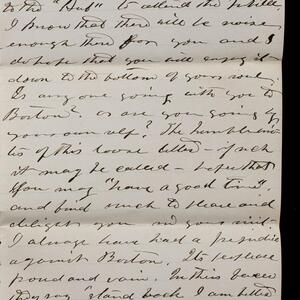 to the "Hub" to attend the Jubilee
I know that there will be noise
enough there for you and I
do hope that you will enjoy it
down to the bottom of your soul.
Is any one going with you to
Boston? or are you going by
your own self? The humble
of this loose letter - if such
it may be called - hopes that
you may "have a good time",
and find much to please and
delight you and your
I always have had a prejudice
against Boston. Its people are
proud and vain. In this
they say "stand back I am